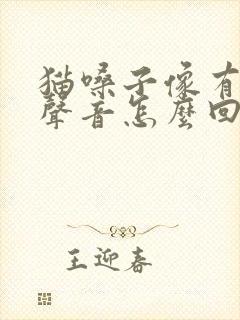 猫嗓子像有
聲音怎麼回
王迎春